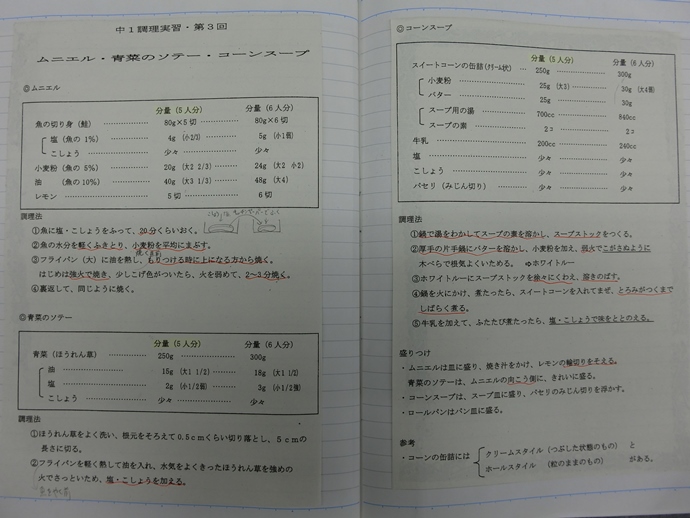 中１調理実習・第３回
ムニエル・青菜のソテー・コーンスープ
◎ムニエル
分量（５人分） 分量（６人分）
魚の切り身（鮭） 80g×５切 80g×６切
塩（魚の１%） 4g（小2/3） 5g（小1個）
こしょう 少々 少々
小麦粉（魚の５%） 20g（大2 2/3） 24g（大2 小2）
油（魚の10%） 40g（大3 1/3） 48g（大4）
レモン ５切 ６切
調理法
①魚に塩・こしょうをふって、20分くらいおく。
②魚の水分を軽くふきとり、小麦粉を平均にまぶす。
③フライパン（大）に油を熱し、もりつける時に上になる方から焼く。
はじめは強火で焼き、少しこげ色がついたら、火を弱めて、２～３分焼く。
④裏返して、同じように焼く。
◎青菜のソテー
分量（５人分） 分量（６人分）
青菜（ほうれん草） 250g 300g
油 15g（大1 1/2） 18g（大1 1/2）
塩 2g（小1/2個） 3g（小1/2個）
こしょう 少々 少々
調理法
①ほうれん草をよく洗い、根元をそろえて0.5cmくらい切り落とし、５cmの
長さに切る。
②フライパンを軽く熱して油を入れ、水気をよくきったほうれん草を強めの
火でさっといため、塩・こしょうを加える。
◎コーンスープ
分量（５人分） 分量（６人分）
スイートコーンの缶詰（クリーム状） 250g 300g
小麦粉 25g（大3） 30g（大4個）
バター 25g 30g
スープ用の湯 700cc 840cc
スープの素 ２コ ２コ
牛乳 200cc 240cc
塩 少々 少々
こしょう 少々 少々
パセリ（みじん切り） 少々 少々
調理法
①鍋で湯をわかしてスープの素を溶かし、スープストックをつくる。
②厚手の片手鍋にバターを溶かし、小麦粉を加え、弱火でこがさぬように
木べらで根気よくいためる。 ⇨ホワイトルー
③ホワイトルーにスープストックを徐々にくわえ、溶きのばす。
④鍋を火にかけ、煮たったら、スイートコーンを入れてまぜ、とろみがつくまで
しばらく煮る。
⑤牛乳を加えて、ふたたび煮たったら、塩・こしょうで味をととのえる。
盛りつけ
・ムニエルは皿に盛り、焼き汁をかけ、レモンの輪切りをそえる。
青菜のソテーは、ムニエルの向こう側に、きれいに盛る。
・コーンスープは、スープ皿に盛り、パセリのみじん切りを浮かす。
・ロールパンはパン皿に盛る。
参考
・コーンの缶詰には クリームスタイル（つぶした状態のもの）と
ホールスタイル（粒のままのもの） がある。